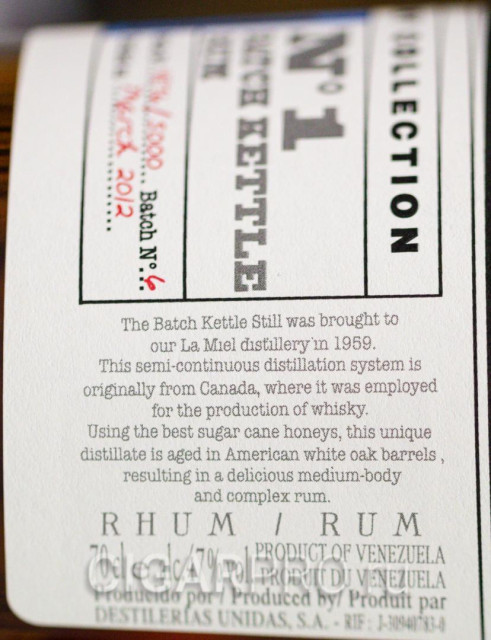 COLLECTION
Nº 1
BATCH KETTLE
/5000 Batch Nº: 6
March 2012
The Batch Kettle Still was brought to
our La Miel distillery in 1959.
This semi-continuous distillation system is
originally from Canada, where it was employed
for the production of whisky.
Using the best sugar cane honeys, this unique
distillate is aged in American white oak barrels ,
resulting in a delicious medium-body
and complex rum.
RHUM / RUM
70cl e PRODUCT OF VENEZUELA
PRODUIT DU VENEZUELA
Producido por / Produced by/ Produit par
DESTILERÍAS UNIDAS, S.A. - RIF: J-30940783-0